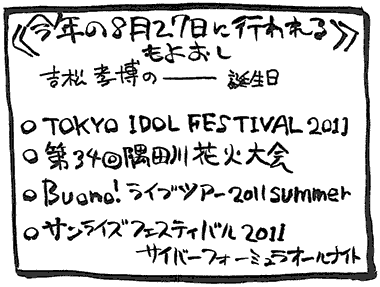 《今年の8月27日に行われる》
もよおし
吉松孝博の――誕生日
○TOKYO IDOL FESTIVAL 2011
○第34回隅田川花火大会
○Buono!ライブツアー2011summer
○サンライズフェスティバル2011
サイバーフォーミュラオールナイト